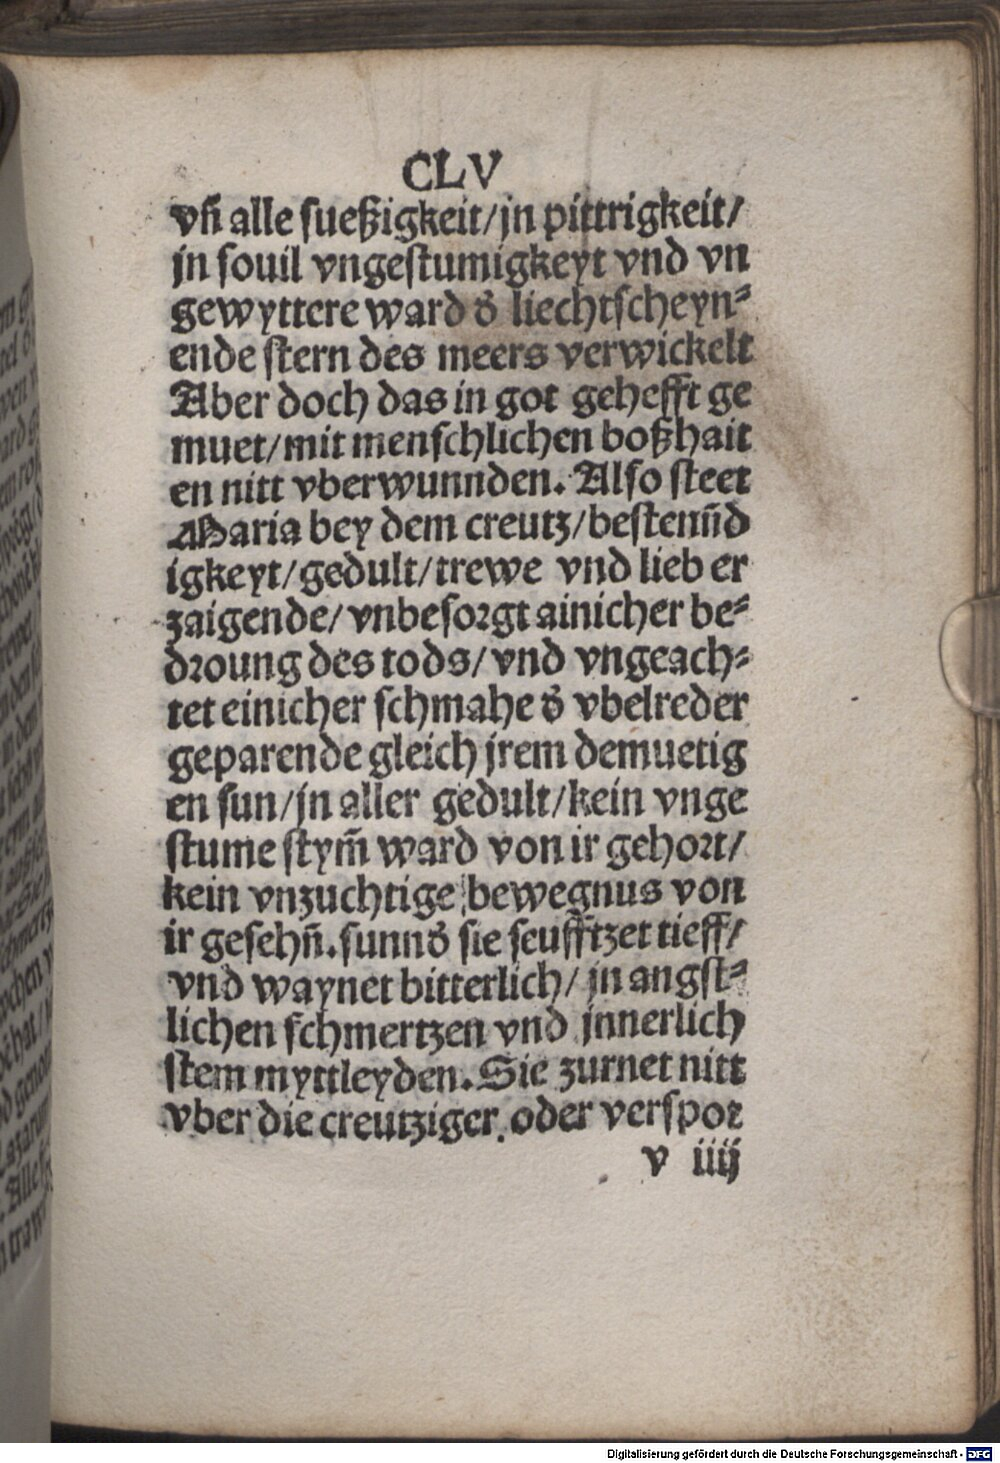 CLV
vn̄ alle sueßigkeit/jn pittrigkeit/
jn souil vngestumigkeyt vnd vn
gewyttere ward d̕ liechtscheyn⸗
ende stern des meers verwickelt
Aber doch das in got gehefft ge
muet/mit menschlichen boßhait
en nitt vberwunnden. Also steet
Maria bey dem creutz/bestenn̄d
igkeyt/gedult/trewe vnd lieb er
zaigende/vnbesorgt ainicher be⸗
droung des tods/vnd vngeach⸗
tet einicher schmahe d̕ vbelreder
geparende gleich jrem demuetig
en sun/jn aller gedult/kein vnge
stume stym̄ ward von ir gehort/
kein vnzuchtige bewegnus von
ir gesehn̄. sunnd̕ sie seufftzet tieff/
vnd waynet bitterlich/jn angst⸗
lichen schmertzen vnd jnnerlich
stem myttleyden. Sie zurnet nitt
vber die creutziger. oder verspor
v iiij
Digitalisierung gefördert durch die Deutsche Forschungsgemeinschaft - DFG